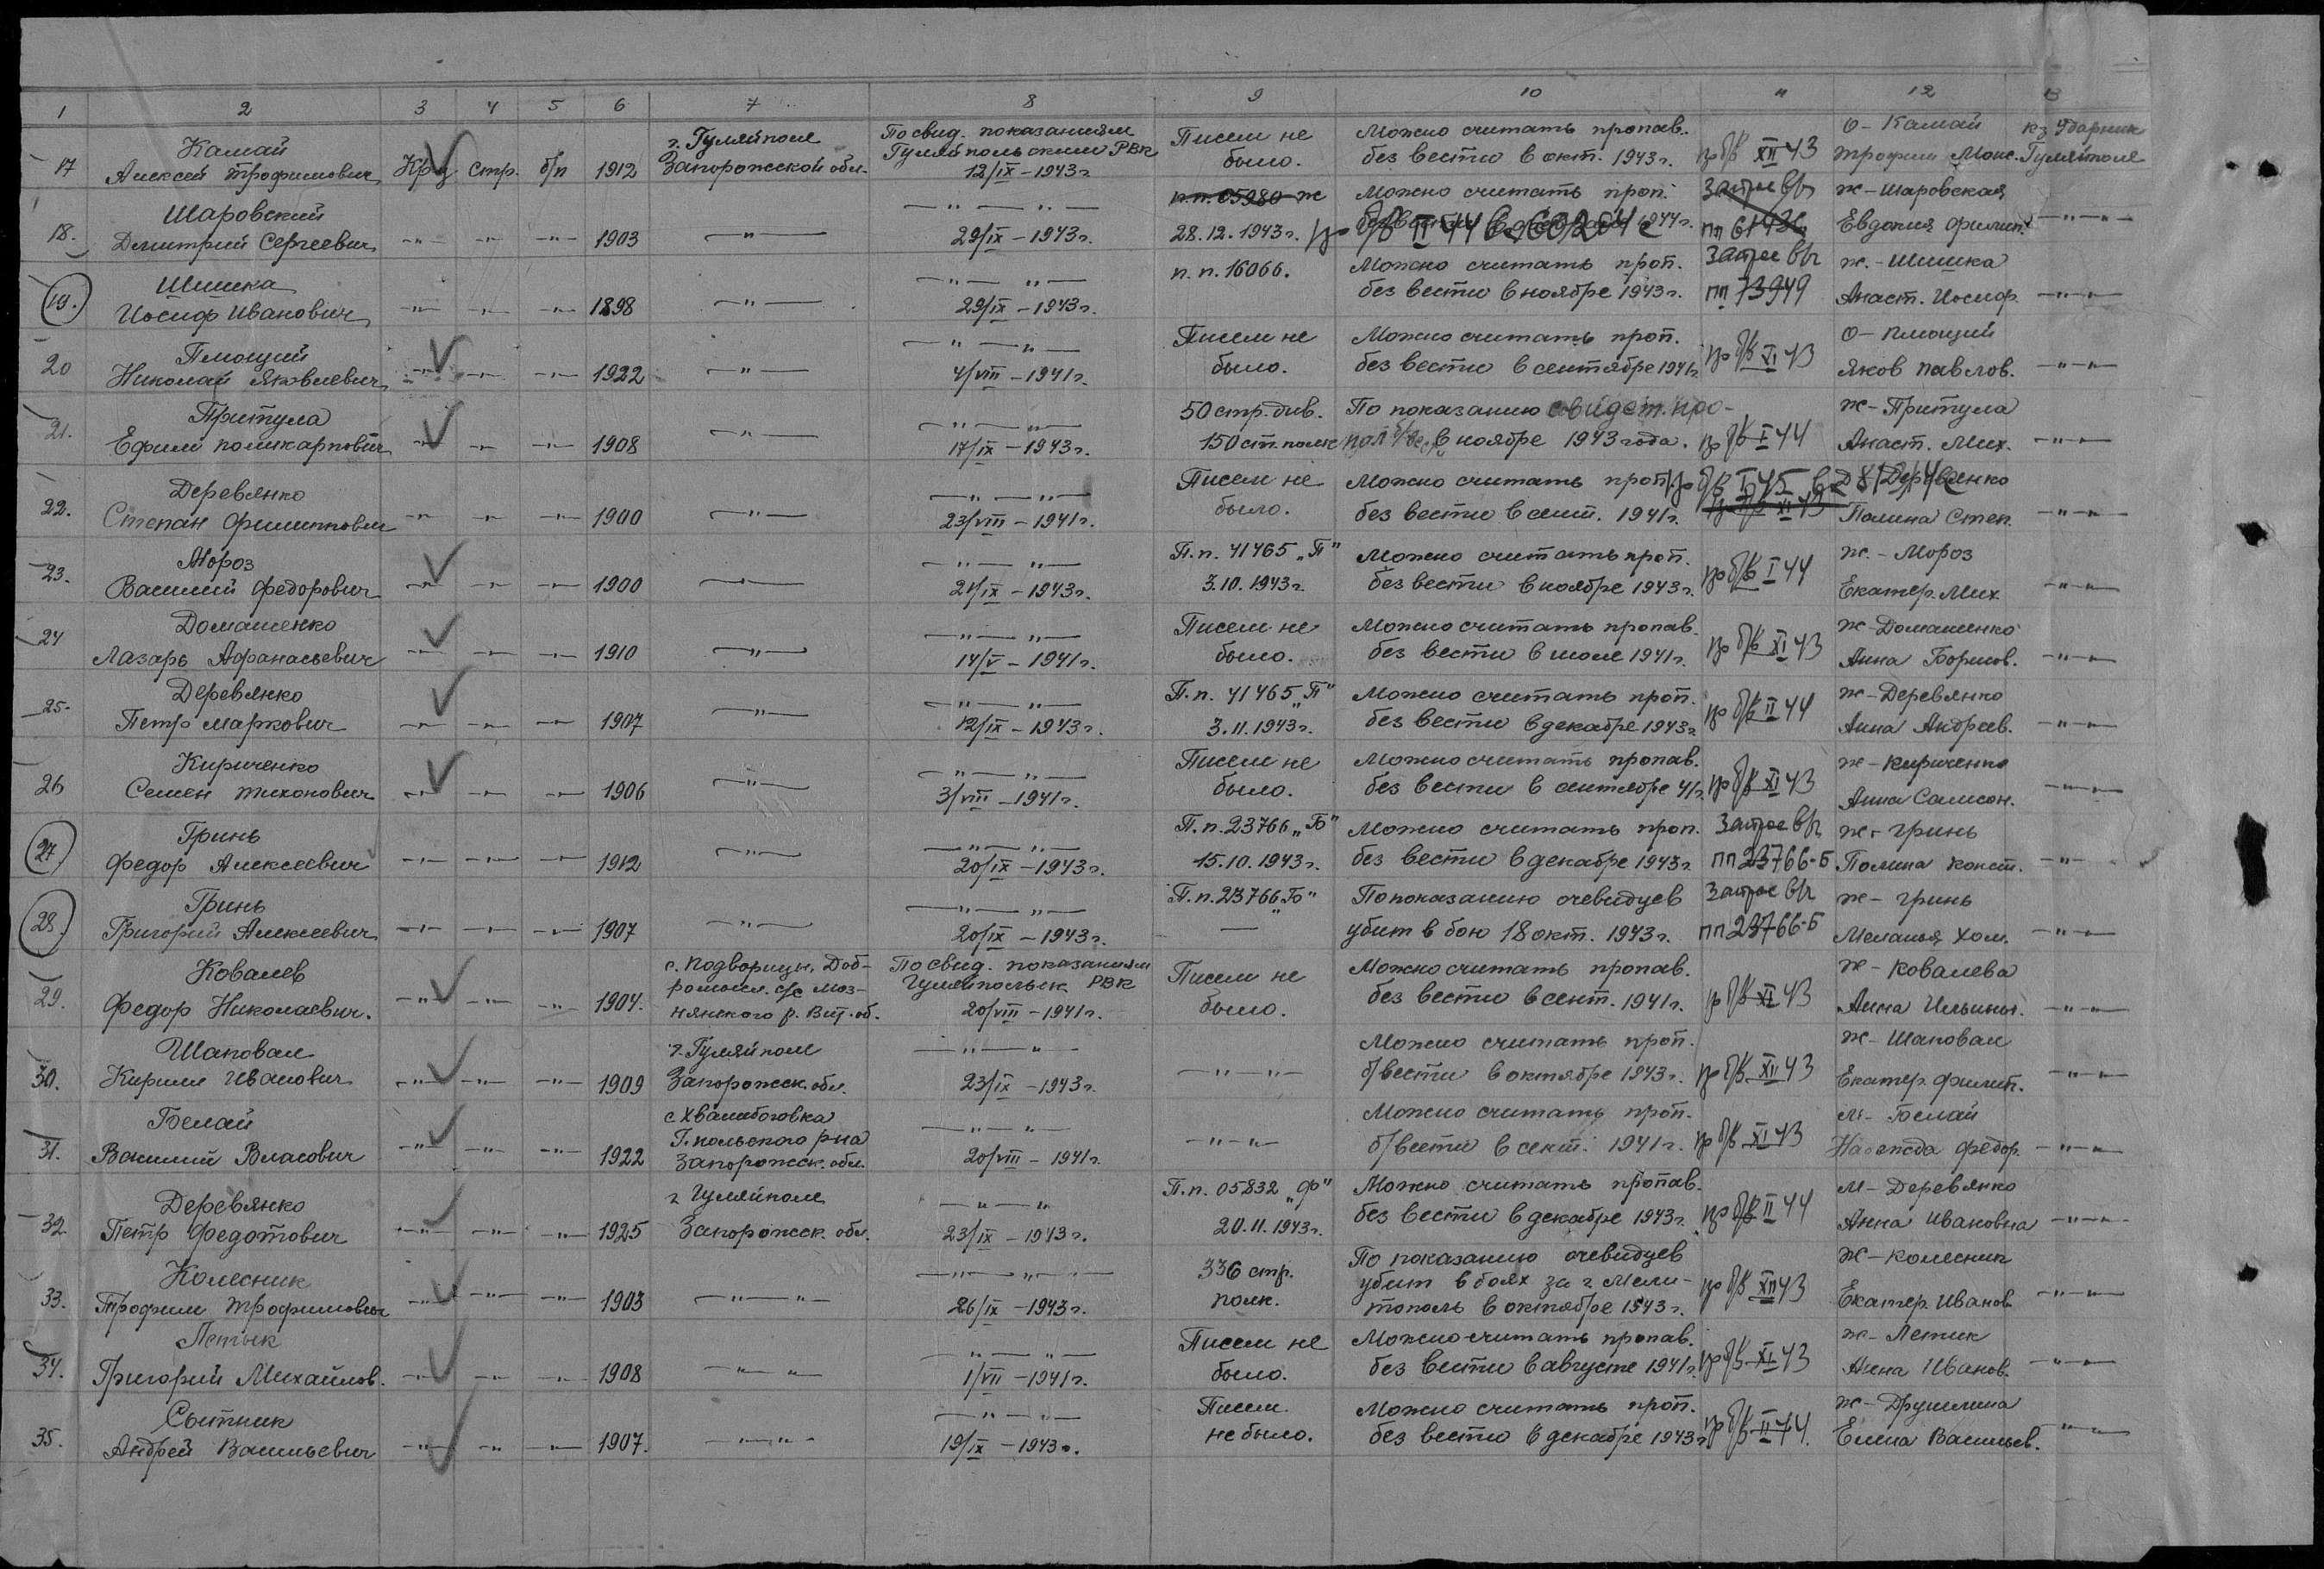 1 2 3 4 5 6 7 8 9 10 11 12 13
17 Камай Алексей Трофимович Кр-ц стр. б/п 1912 г. Гуляйполе Запорожской обл. По свид. показаниям Гуляйпольским РВК 12/IX – 1943 г. Писем не было. Можно считать пропав. без вести в окт. 1943 г. пр б/в XII 43 о – Камай Трофим Макс. кз Ударник Гуляйполе
18. Шаровский Дмитрий Сергеевич –"– –"– –"– 1903 –"– –"– –"– 29/IX – 1943 г. п.п. 05980 ж 28.12.1943 г. Можно считать проп. 1944 г. пр б/в II 44 Запрос ВЧ пп ж – Шаровская Евдокия Филип. –"–"–
19. Шишка Иосиф Иванович –"– –"– –"– 1898 –"– –"– –"– 29/IX – 1943 г. п.п. 16066. Можно считать проп. без вести в ноябре 1943 г. Запрос ВЧ пп 73949 ж. – Шишка Анаст. Иосиф. –"–"–
20 Николай Яковлевич –"– –"– –"– 1922 –"– –"– –"– 4/VIII – 1941 г. Писем не было. Можно считать проп. без вести в сентябре 1941 г. пр б/в XI 43 о – Яков Павлов. –"–"–
21. Притула Ефим Поликарпович –"– –"– –"– 1908 –"– –"– –"– 17/IX – 1943 г. 50 стр. див. 150 ст. полк По показанию свидет. про- в ноябре 1943 года. пр б/в I 44 ж – Притула Анаст. Мих. –"–"–
22. Деревянко Степан Филиппович –"– –"– –"– 1900 –"– –"– –"– 23/VIII – 1941 г. Писем не было. Можно считать проп. без вести в сент. 1941 г. пр б/в I 45 пр б/в XI 43 Деревянко Полина Степ. –"–"–
23. Мороз Василий Федорович –"– –"– –"– 1900 –"– –"– –"– 21/IX – 1943 г. П.п. 41465 „П" 3.10.1943 г. Можно считать проп. без вести в ноябре 1943 г. пр б/в I 44 ж. – Мороз Екатер. Мих. –"–"–
24 Домашенко Лазарь Афанасьевич –"– –"– –"– 1910 –"– –"– –"– 14/V – 1941 г. Писем не было. Можно считать пропав. без вести в июле 1941 г. пр б/в XI 43 ж – Домашенко Анна Борисов. –"–"–
25. Деревянко Петр Маркович –"– –"– –"– 1907 –"– –"– –"– 12/IX – 1943 г. П.п. 41465 „П" 3.11.1943 г. Можно считать проп. без вести в декабре 1943 г. пр б/в II 44 ж – Деревянко Анна Андреев. –"–"–
26 Кириченко Семен Тихонович –"– –"– –"– 1906 –"– –"– –"– 3/VIII – 1941 г. Писем не было. Можно считать пропав. без вести в сентябре 41 г. пр б/в XI 43 ж – Кириченко Анна Самсон. –"–"–
27 Гринь Федор Алексеевич –"– –"– –"– 1912 –"– –"– –"– 20/IX – 1943 г. П.п. 23766 „Б" 15.10.1943 г. Можно считать проп. без вести в декабре 1943 г. Запрос ВЧ пп 23766-Б ж – Гринь Полина Конст. –"–
28. Гринь Григорий Алексеевич –"– –"– –"– 1907 –"– –"– –"– 20/IX – 1943 г. П.п. 23766 „Б" – По показанию очевидцев убит в бою 18 окт. 1943 г. Запрос ВЧ пп 23766-Б ж – Гринь Меланья Хом. –"–"–
29. Ковалев Федор Николаевич. –"– –"– –"– 1904. с. Подворицы, Доб- с/с Лиоз- нянского р. Вит. об. По свид. показаниям Гуляйпольск РВК 20/VIII – 1941 г. Писем не было. Можно считать пропав. без вести в сент. 1941 г. пр б/в XI 43 ж – Ковалева Анна Ильинич. –"–"–
30. Шаповал Кирилл Иванович –"– –"– –"– 1909 г. Гуляйполе Запорожск. обл. –"– –"– 23/IX – 1943 г. –"– –"– Можно считать проп. б/вести в октябре 1943 г. пр б/в XII 43 ж – Шаповал Екатер. Филип. –"–"–
31. Василий Власович –"– –"– –"– 1922 с. Г. польского р-на Запорожск. обл. –"– –"– 20/VIII – 1941 г. –"–"– Можно считать проп. б/вести в сент. 1941 г. пр б/в XI 43 м – Надежда Федор. –"–"–
32. Деревянко Петр Федотович –"– –"– –"– 1925 г Гуляйполе Запорожск. обл. –"– –"– 23/IX – 1943 г. П.п. 05832 „Ф" 20.11.1943 г. Можно считать пропав. без вести в декабре 1943 г. пр б/в II 44 м – Деревянко Анна Ивановна –"–"–
33. Колесник Трофим Трофимович –"– –"– –"– 1903 –"– –"– –"– –"– 26/IX – 1943 г. 336 стр. полк. По показанию очевидцев убит в боях за г. Мели- тополь в октябре 1943 г. пр б/в XII 43 ж – Колесник Екатер. Иванов. –"–"–
34. Григорий Михайлов. –"– –"– –"– 1908 –"– –"– –"– –"– 1/VII – 1941 г. Писем не было. Можно считать пропав. без вести в августе 1941 г. пр б/в XI 43 ж – Летик Анна Иванов. –"–"–
35. Сытник Андрей Васильевич –"– –"– –"– 1907. –"–"– –"– –"– 19/IX – 1943 г. Писем не было. Можно считать проп. без вести в декабре 1943 г. пр б/в II 44. ж – Елена Васильев. –"–"–